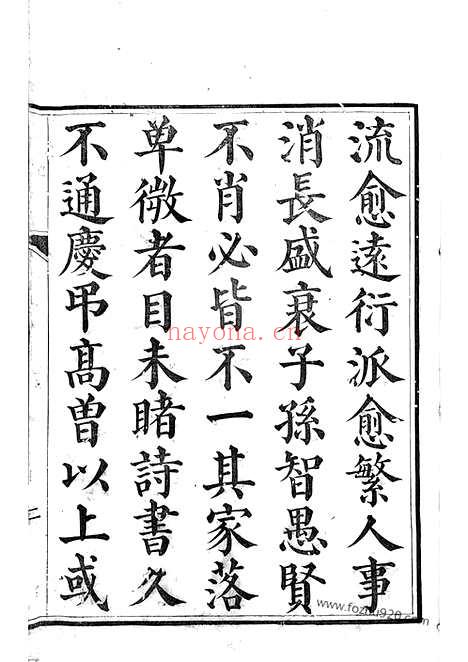 流愈遠衍派愈繁人事
消長盛衰子孫智愚賢
不肖必皆不一其家落
卑微者目未睹詩書久
不通慶弔髙曽以上或
二
nayona.cn
www.fozhu920.com